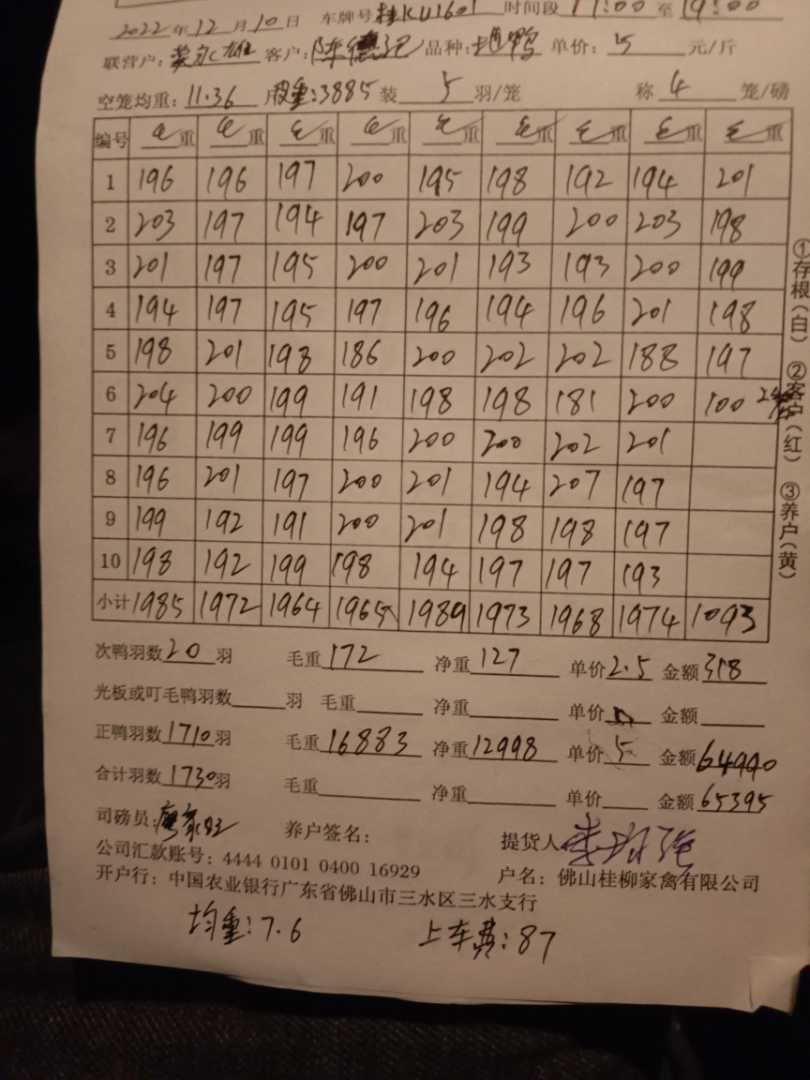 2022年12月10日 车牌号桂KU1601 时间段17:00至19:00
联营户: 客户:陈德 品种: 鸭 单价:5 元/斤
空笼均重:11.36 皮重:3885 装 5 羽/笼 称 4 笼/磅
编号 毛重 毛重 毛重 毛重 毛重 毛重 毛重 毛重 毛重
1 196 196 197 200 195 198 192 194 201
2 203 197 194 197 203 199 200 203 198
3 201 197 195 200 201 193 193 200 199
4 194 197 195 197 196 194 196 201 198
5 198 201 198 186 200 202 202 188 197
6 204 200 199 191 198 198 181 200 100
7 196 199 199 196 200 200 202 201
8 196 201 197 200 201 194 207 197
9 199 192 191 200 201 198 198 197
10 198 192 199 198 194 197 197 193
小计 1985 1972 1964 1965 1989 1973 1968 1974 1093
①存根(白) ②客户(红) ③养户(黄)
次鸭羽数20羽 毛重172 净重127 单价2.5 金额318
光板或叮毛鸭羽数 羽 毛重 净重 单价 金额
正鸭羽数1710羽 毛重16883 净重12998 单价5 金额64990
合计羽数1730羽 毛重 净重 单价 金额65395
司磅员: 养户签名: 提货人
公司汇款账号:4444 0101 0400 16929 户名:佛山桂柳家禽有限公司
开户行:中国农业银行广东省佛山市三水区三水支行
均重:7.6 上车费:87